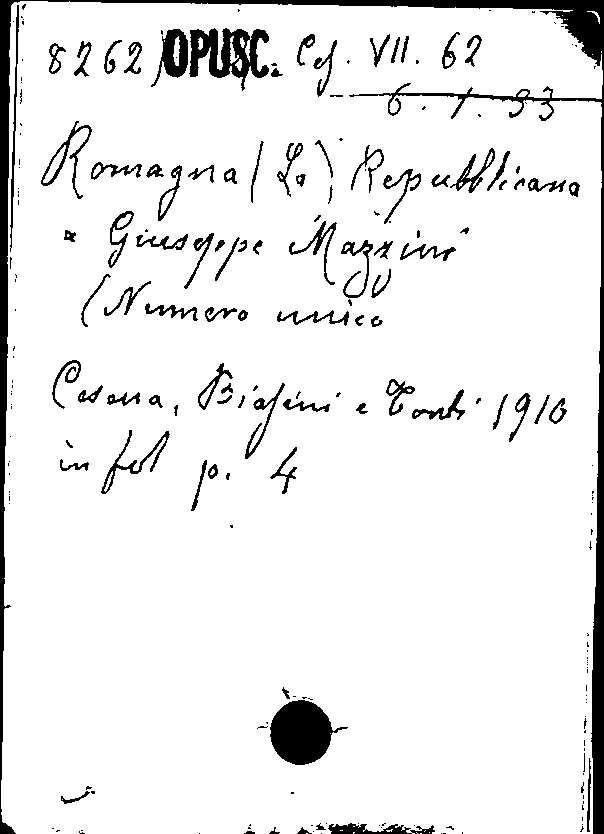 8262) OPUSC. Ces. VII. 62
6. 1. 33
Romagna (La) Repubblicana
a Giuseppe Mazzini
(Numero unico
Cesena, Biasini e Tonti 1910
in fol p. 4